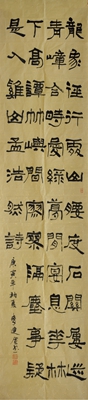 龍象經行處山腰度石關屢迷
青嶂合時愛綠蘿閒宴息花林
下高談竹嶼間寥寥隔塵事疑
是入雞山孟浩然詩
庚寅年初夏